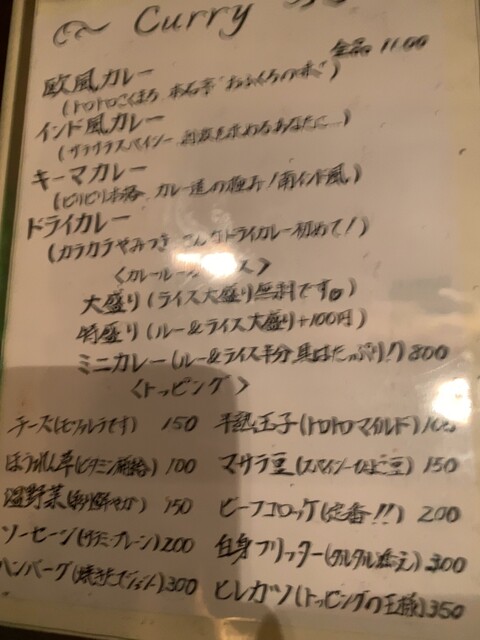 Curry
全品 1100
欧風カレー
(トロトロこくまろ "おふくろの味")
インド風カレー
(サラサラスパイシー 刺激を求めるあなたに…)
キーマカレー
(ピリピリ本格 カレー道の極み! 南インド風)
ドライカレー
(カラカラやみつき こんなドライカレー初めて!)
大盛り (ライス大盛り無料です)
特盛り (ルー&ライス大盛り+100円)
ミニカレー (ルー&ライス半分 具はたっぷり!) 800
<トッピング>
チーズ(モツァレラです) 150 半熟玉子(トロトロマイルド)
ほうれん草(ビタミン補給) 100 マサラ豆(スパイシーひよこ豆) 150
温野菜(彩り鮮やか) 150 ビーフコロッケ(定番!!) 200
ソーセージ 200 白身フリッター(タルタル添え) 300
ハンバーグ 300 ヒレカツ(トッピングの王様) 350